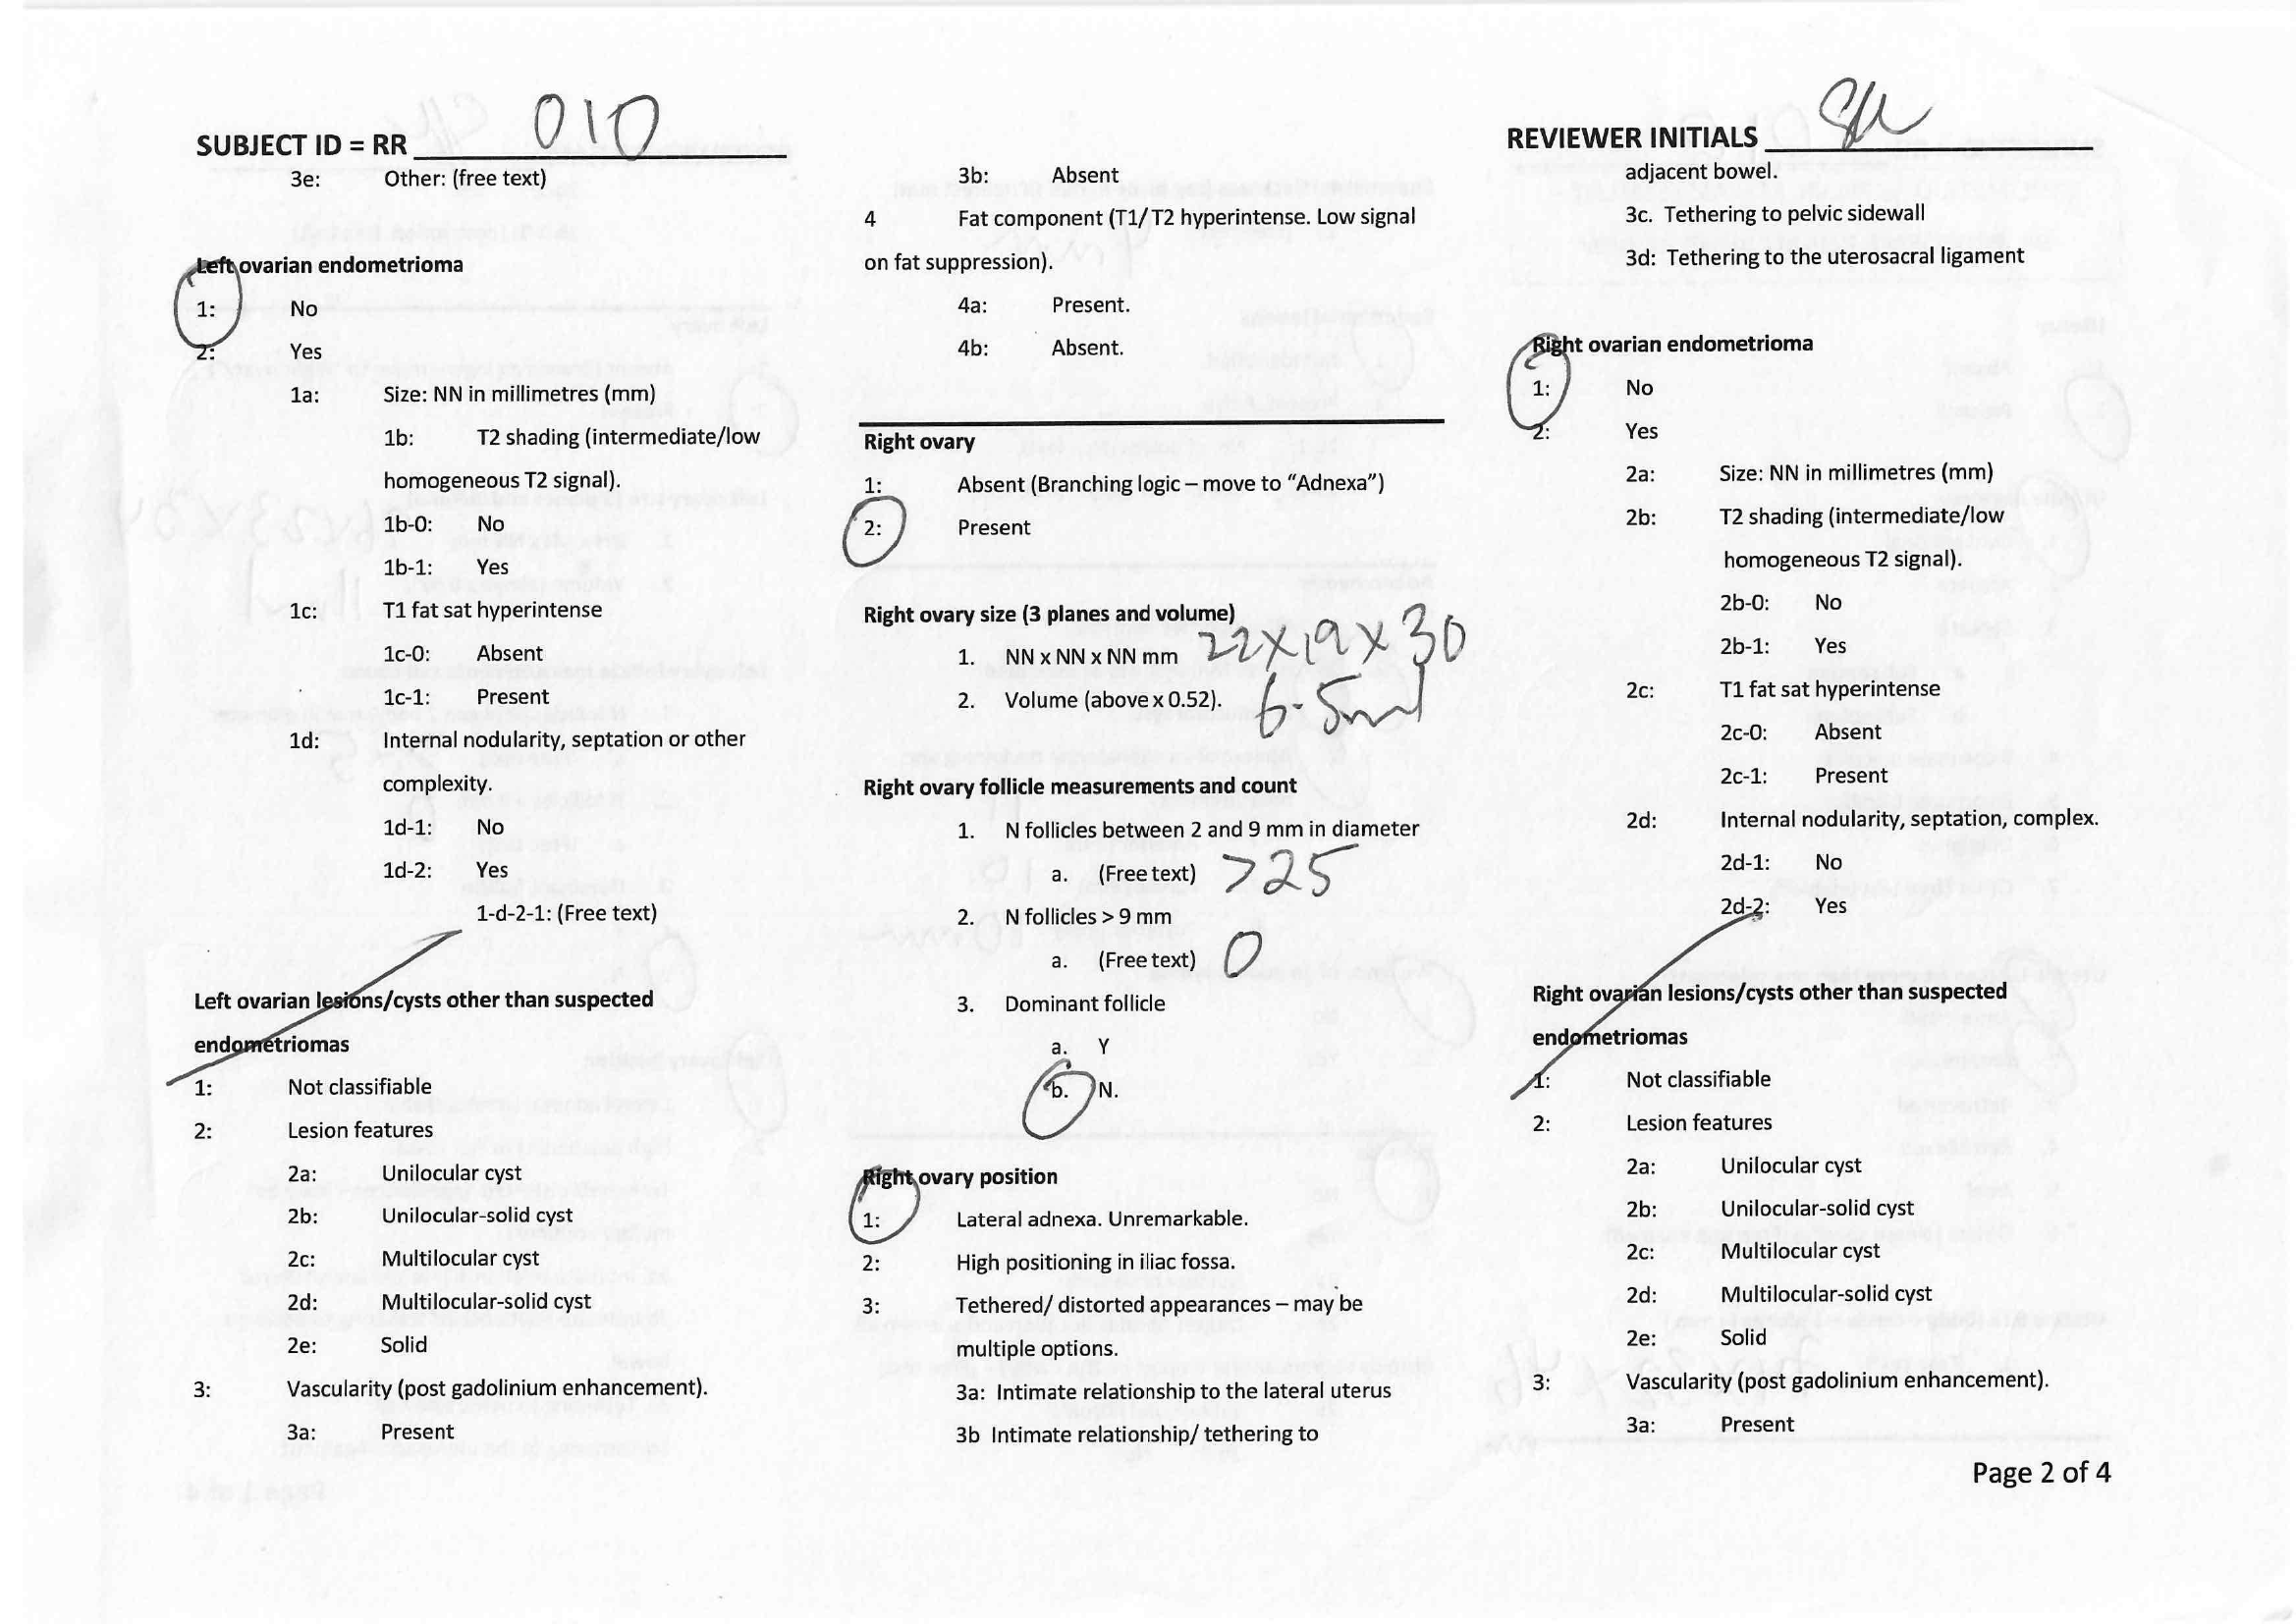 SUBJECT ID = RR 010
3e: Other: (free text)
Left ovarian endometrioma
1: No
2: Yes
1a: Size: NN in millimetres (mm)
1b: T2 shading (intermediate/low
homogeneous T2 signal).
1b-0: No
1b-1: Yes
1c: T1 fat sat hyperintense
1c-0: Absent
1c-1: Present
1d: Internal nodularity, septation or other
complexity.
1d-1: No
1d-2: Yes
1-d-2-1: (Free text)
Left ovarian lesions/cysts other than suspected
endometriomas
1: Not classifiable
2: Lesion features
2a: Unilocular cyst
2b: Unilocular-solid cyst
2c: Multilocular cyst
2d: Multilocular-solid cyst
2e: Solid
3: Vascularity (post gadolinium enhancement).
3a: Present
3b: Absent
4 Fat component (T1/T2 hyperintense. Low signal
on fat suppression).
4a: Present.
4b: Absent.
Right ovary
1: Absent (Branching logic – move to “Adnexa”)
2: Present
Right ovary size (3 planes and volume)
1. NN x NN x NN mm 22x19x30
2. Volume (above x 0.52). 6.5ml
Right ovary follicle measurements and count
1. N follicles between 2 and 9 mm in diameter
a. (Free text) >25
2. N follicles > 9 mm
a. (Free text) 0
3. Dominant follicle
a. Y
b. N.
Right ovary position
1: Lateral adnexa. Unremarkable.
2: High positioning in iliac fossa.
3: Tethered/ distorted appearances – may be
multiple options.
3a: Intimate relationship to the lateral uterus
3b Intimate relationship/ tethering to
REVIEWER INITIALS
adjacent bowel.
3c. Tethering to pelvic sidewall
3d: Tethering to the uterosacral ligament
Right ovarian endometrioma
1: No
2: Yes
2a: Size: NN in millimetres (mm)
2b: T2 shading (intermediate/low
homogeneous T2 signal).
2b-0: No
2b-1: Yes
2c: T1 fat sat hyperintense
2c-0: Absent
2c-1: Present
2d: Internal nodularity, septation, complex.
2d-1: No
2d-2: Yes
Right ovarian lesions/cysts other than suspected
endometriomas
1: Not classifiable
2: Lesion features
2a: Unilocular cyst
2b: Unilocular-solid cyst
2c: Multilocular cyst
2d: Multilocular-solid cyst
2e: Solid
3: Vascularity (post gadolinium enhancement).
3a: Present
Page 2 of 4